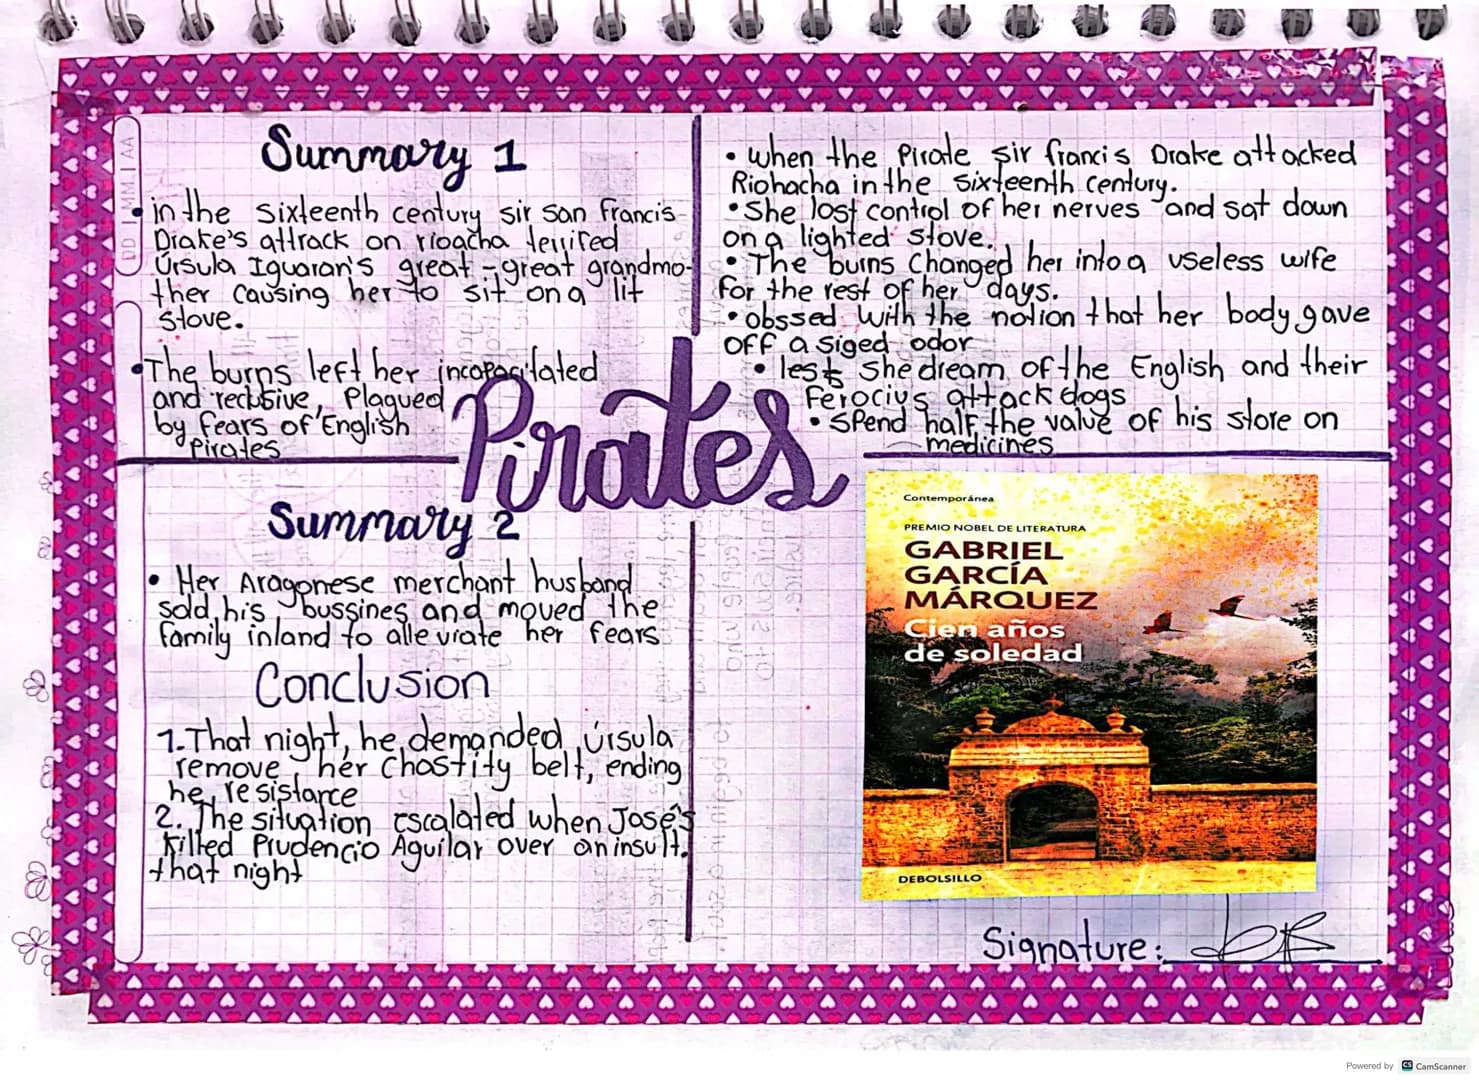 Summary 1
• in the sixteenth century sir san francis
Drake's attrack on rioacha terrified
Úrsula Iguaran's great-great grandmo-
ther causing her to sit on a lit
stove.
• The burns left her incapacitated
and reclusive, plagued
by fears of English
Pirates
• when the Pirate sir francis Drake attacked
Riohacha in the sixteenth century.
• She lost control of her nerves and sat down
on a lighted stove.
• The burns changed her into a useless wife
for the rest of her days.
• obssed with the notion that her body gave
off a siged odor
• lest she dream of the English and their
ferocius attack dogs
• spend half the value of his store on
medicines
Pirates
Summary 2
• Her Aragonese merchant husband
sold his bussines and moved the
family inland to alleviate her fears
Conclusion
1. That night, he demanded Úrsula
remove her chastity belt, ending
he resistance
2. The situation escalated when José's
killed Prudencio Aguilar over an insult.
that night
Contemporánea
PREMIO NOBEL DE LITERATURA
GABRIEL
GARCÍA
MÁRQUEZ
Cien años
de soledad
DEBOLSILLO
Signature:
DD | MM | AA
Powered by CS CamScanner